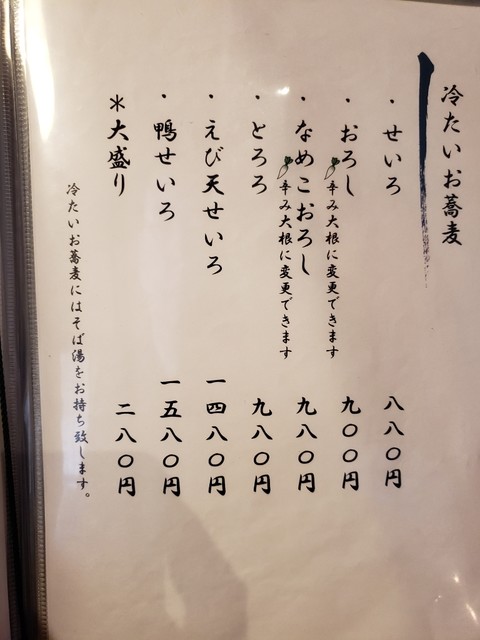 冷たいお蕎麦
・せいろ 八八〇円
・おろし 九〇〇円
辛み大根に変更できます
・なめこおろし 九八〇円
辛み大根に変更できます
・とろろ 九八〇円
・えび天せいろ 一四八〇円
・鴨せいろ 一五八〇円
＊大盛り 二八〇円
冷たいお蕎麦にはそば湯をお持ち致します。